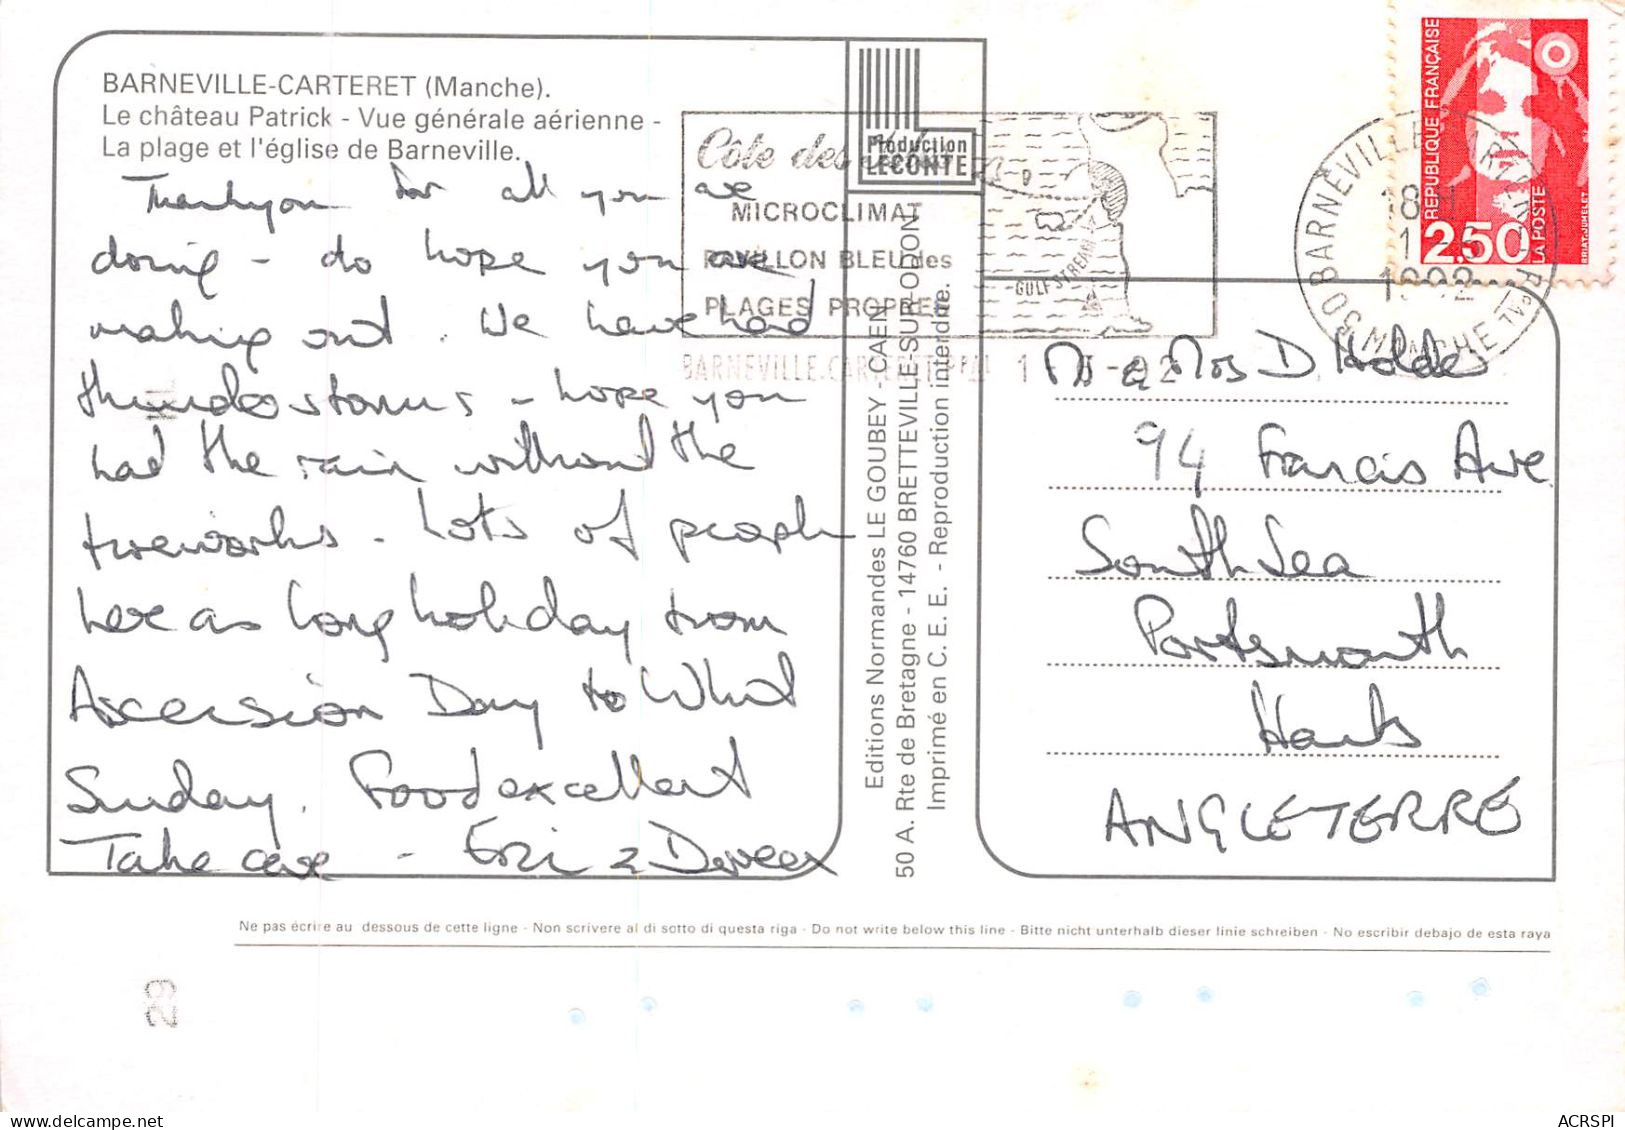 BARNEVILLE-CARTERET (Manche).
Le château Patrick - Vue générale aérienne -
La plage et l'église de Barneville.
Thankyou for all you are
doing - do hope you are
making out. We have had
thunderstorms - hope you
had the rain without the
fireworks. Lots of people
here as long holiday from
Ascension Day to Whit
Sunday. Food excellent
Take care - Eric &
Production
LECONTE
Côte des
MICROCLIMAT
PAVILLON BLEU des
PLAGES PROPRES
GULF STREAM
BARNEVILLE-CARTERET PPAL
50 BARNEVILLE CARTERET PPAL
MANCHE
18 H
1992
REPUBLIQUE FRANÇAISE
2,50
LA POSTE
BRIAT-JUMELET
Editions Normandes LE GOUBEY - CAEN
50 A. Rte de Bretagne - 14760 BRETTEVILLE-SUR-ODON
Imprimé en C. E. E. - Reproduction interdite.
Mr & Mrs D Holdes
94 Francis Ave
SouthSea
Portsmouth
Hants
ANGLETERRE
Ne pas écrire au dessous de cette ligne - Non scrivere al di sotto di questa riga - Do not write below this line - Bitte nicht unterhalb dieser linie schreiben - No escribir debajo de esta raya
29
ACRSPI